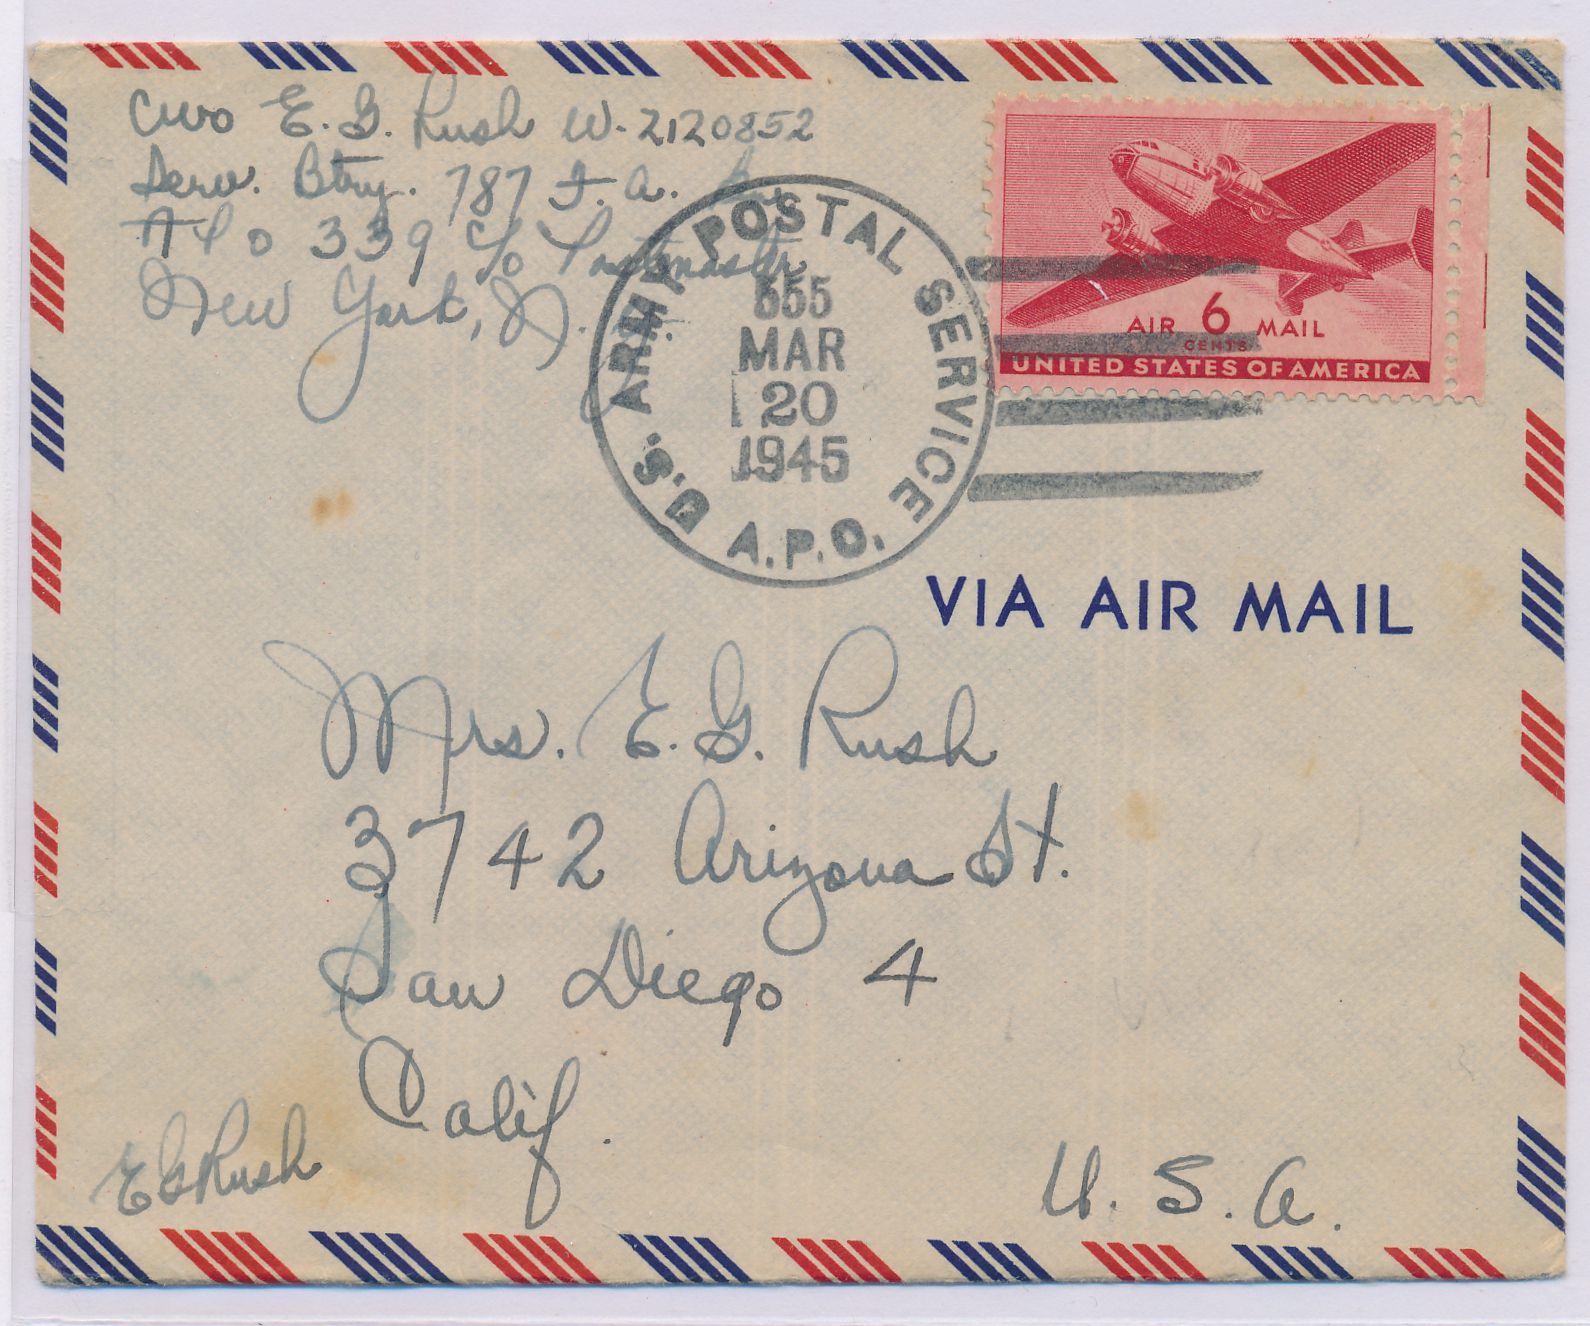 CWO E. G. Rush W-2120852
Serv. Btry. 787 F. A. Bn.
APO 339 c/o Postmaster
New York, N.
U.S. ARMY POSTAL SERVICE
A.P.O.
555
MAR
20
1945
AIR 6 MAIL
CENTS
UNITED STATES OF AMERICA
VIA AIR MAIL
Mrs. E. G. Rush
3742 Arizona St.
San Diego 4
Calif.
U. S. A.
E G Rush